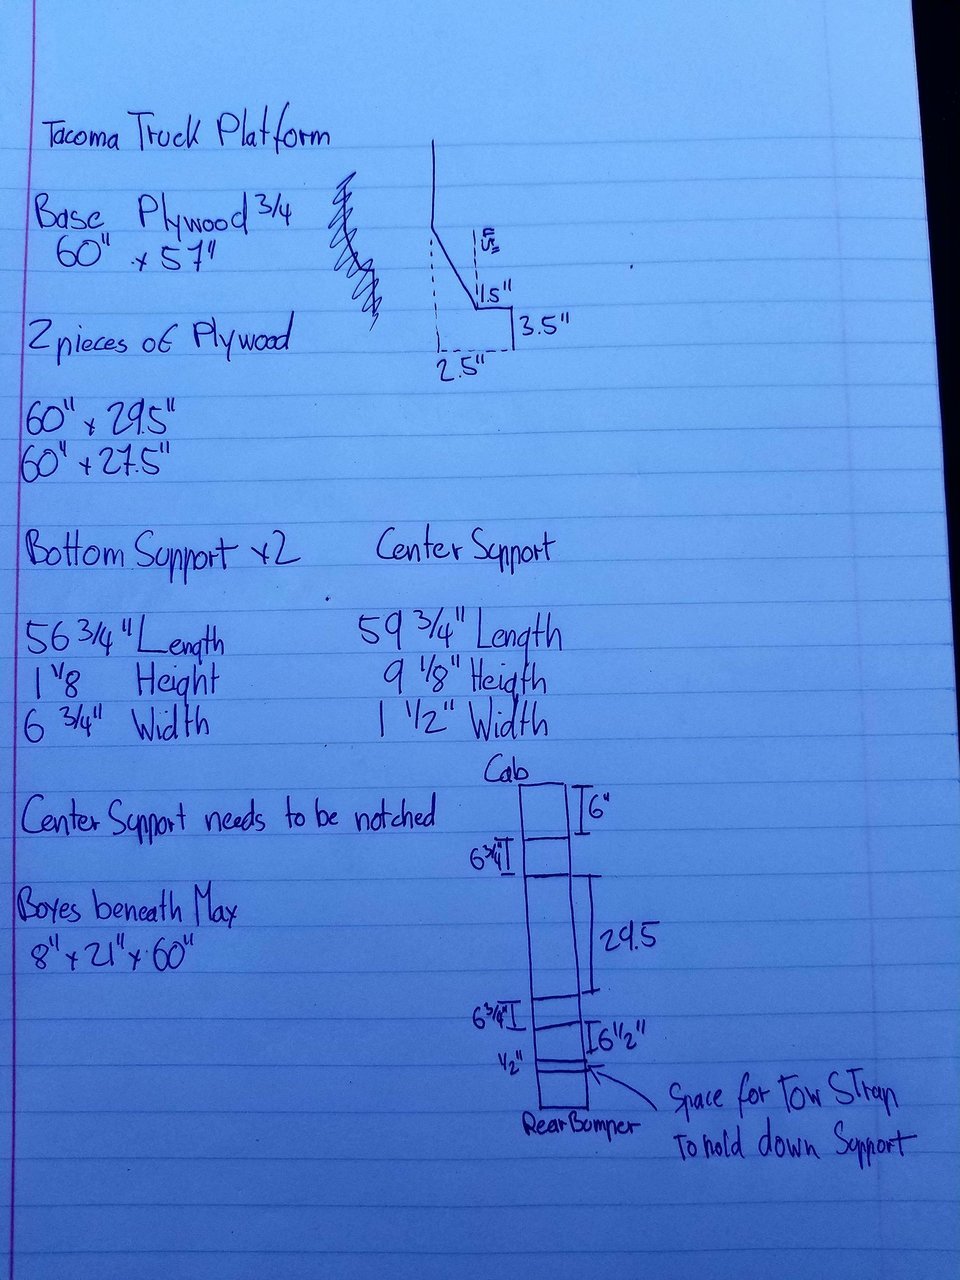 Tacoma Truck Platform
Base Plywood 3/4
60" x 57"
1.5"
3.5"
2.5"
2 pieces of Plywood
60" x 29.5"
60" x 27.5"
Bottom Support x2
56 3/4" Length
1 1/8 Height
6 3/4" Width
Center Support
59 3/4" Length
9 1/8" Heigth
1 1/2" Width
Center Support needs to be notched
Boxes beneath Max
8" x 21" x 60"
Cab
6"
6 3/4"
29.5
6 3/4"
6 1/2"
1/2"
Rear Bumper
Space for Tow STrap
To hold down Support